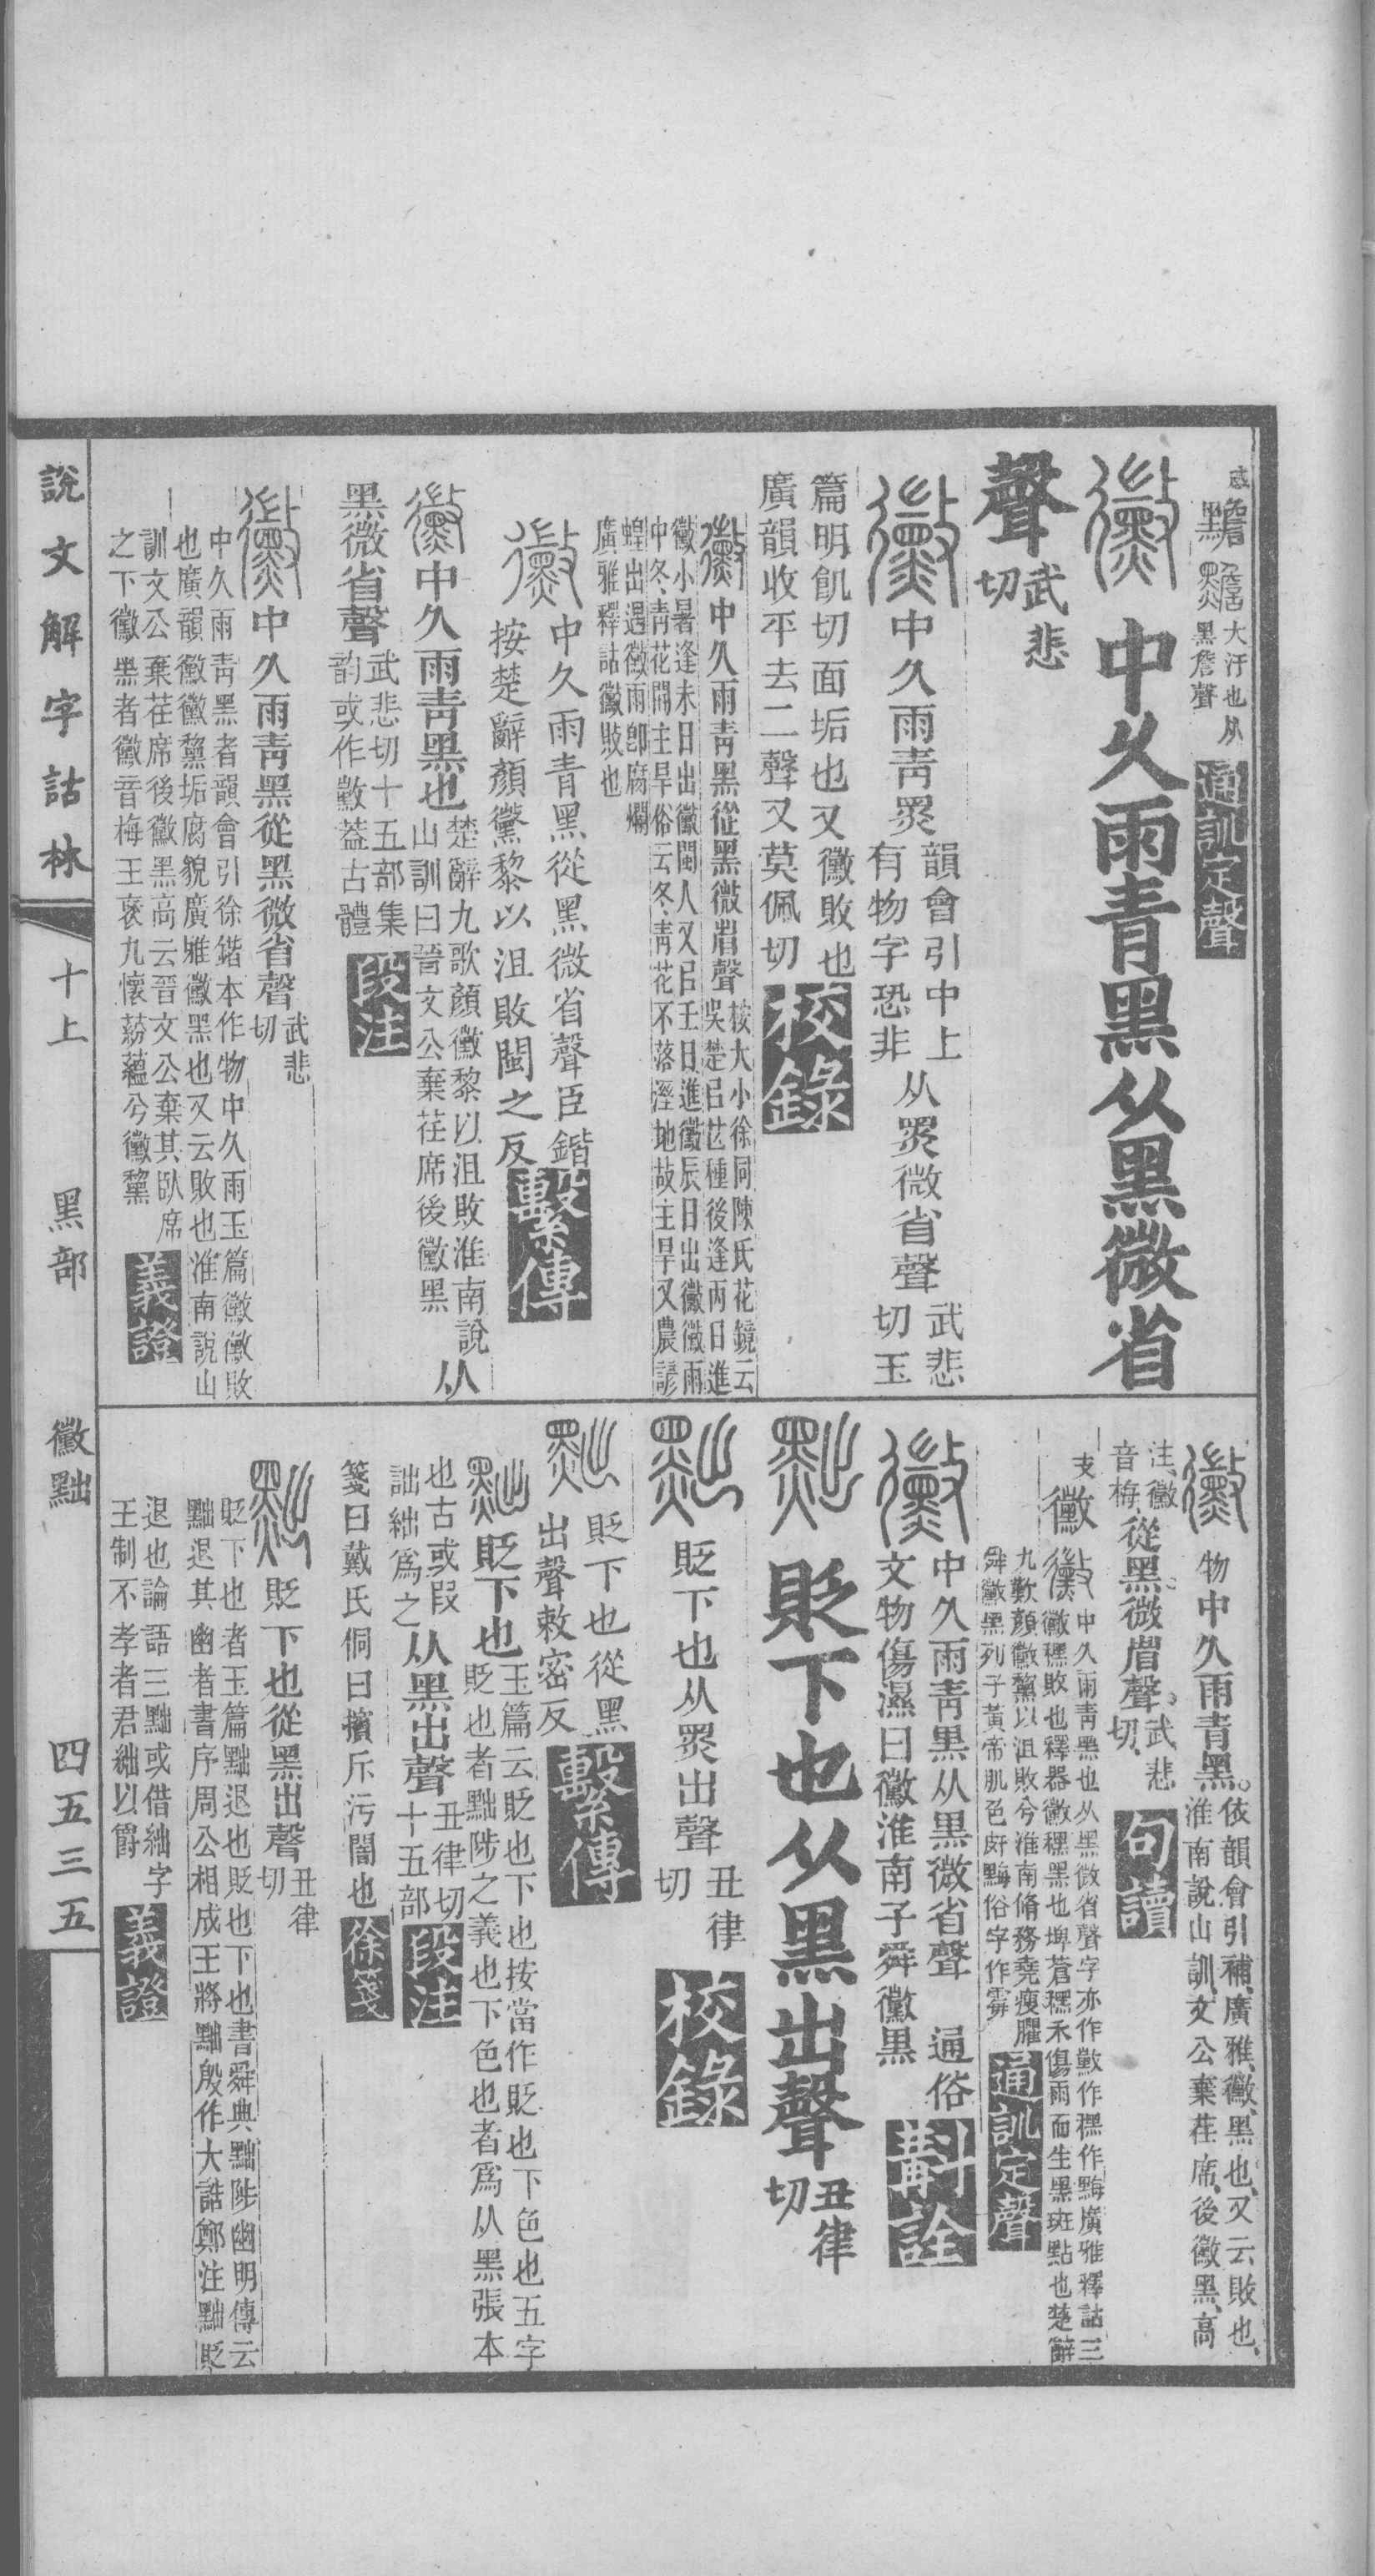 黵
大汙也从
黑詹聲
通訓定聲
黴 中久雨青黑从黑微省
聲
武悲
切
黴 中久雨青黑
韻會引中上
有物字恐非
从黑微省聲
武悲
切玉
篇明飢切面垢也又黴敗也
廣韻收平去二聲又莫佩切
校錄
黴 中久雨青黑從黑微省聲
按大小徐同陳氏花鏡云
吳楚㠯芒種後逢丙日進
黴小暑逢未日出黴閩人又㠯壬日進黴辰日出黴黴雨
中冬青花開主旱俗云冬青花不落溼地故主旱又農諺
蝗出遇黴雨卽腐爛
廣雅釋詁黴敗也
黴 中久雨青黑從黑微省聲臣鍇
按楚辭顏黴黎以沮敗閩之反
繫傳
黴 中久雨青黑也
楚辭九歌顏黴黎以沮敗淮南說
山訓曰晉文公棄荏席後黴黑
从
黑微省聲
武悲切十五部集
韵或作䵟葢古體
段注
黴 中久雨青黑從黑微省聲
武悲
切
中久雨靑黑者韻會引徐鍇本作物中久雨玉篇黴敗
也廣韻黴黴黧垢腐貌廣雅黴黑也又云敗也淮南說山
訓文公棄荏席後黴黑高云晉文公棄其臥席
之下黴黑者黴音梅王襃九懷蒶蘊兮黴黧
義證
黴 物中久雨青黑。
依韻會引補、廣雅、黴、黑也、又云敗也、
淮南說山訓、文公棄荏席、後黴黑、高
注、黴
音梅
從黑。微省聲。
武悲
切、
句讀
黴
中久雨青黑也从黑微省聲字亦作䵟作穤作黣廣雅釋詁三
黴穤敗也釋器黴穤黑也埤蒼穤禾傷雨而生黑斑點也楚辭
九歎顏黴黧以沮敗兮淮南脩務堯瘦臞
舜黴黑列子黃帝肌色皯黣俗字作霉
通訓定聲
黴 中久雨青黑从黑微省聲 通俗
文物傷濕曰黴淮南子舜黴黑
斠詮
黜 貶下也从黑出聲
丑律
切
黜 貶下也从黑出聲
丑律
切
校錄
黜 貶下也從黑
出聲敕密反
繫傳
黜 貶下也
玉篇云貶也下也按當作貶也下色也五字
貶也者黜陟之義也下色也者爲从黑張本
也古或叚
詘絀爲之
从黑出聲
丑律切
十五部
段注
箋曰戴氏侗曰擯斥污闇也
徐箋
黜 貶下也從黑出聲
丑律
切
貶下也者玉篇黜退也貶也下也書舜典黜陟幽明傳云
黜退其幽者書序周公相成王將黜殷作大誥鄭注黜貶
退也論語三黜或借絀字
王制不孝者君絀以爵
義證
說文解字詁林
十上
黑部
黴黜
四五三五